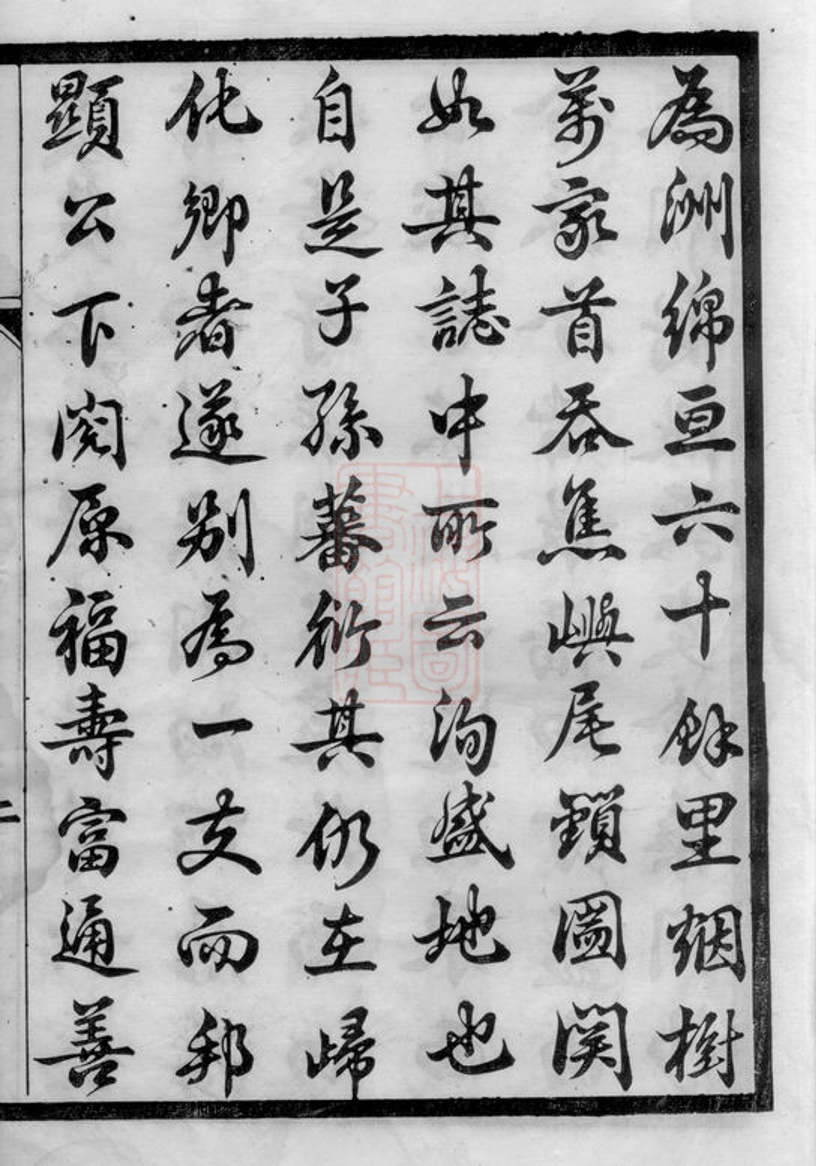 為洲綿亘六十餘里烟樹
萬家首吞焦嶼尾鎖圖關
如其誌中所云洵盛地也
自是子孫蕃衍其仍在歸
化鄉者遂別為一支而邦
顯公下閱原福壽富通善
二